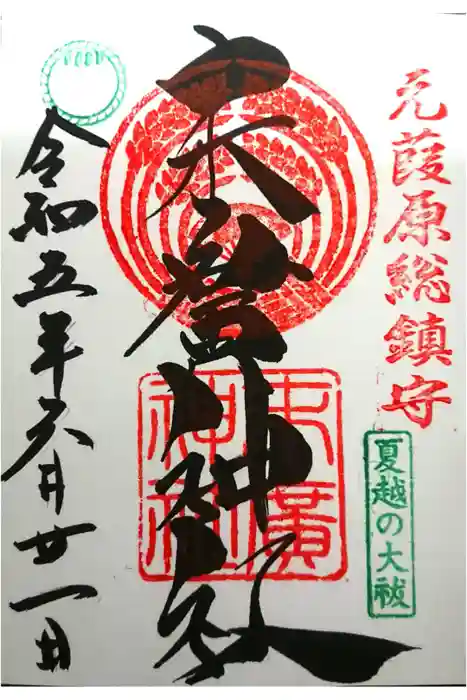 元葭原総鎮守
夏越の大祓
末廣神社
末廣
神社
令和五年六月廿一日